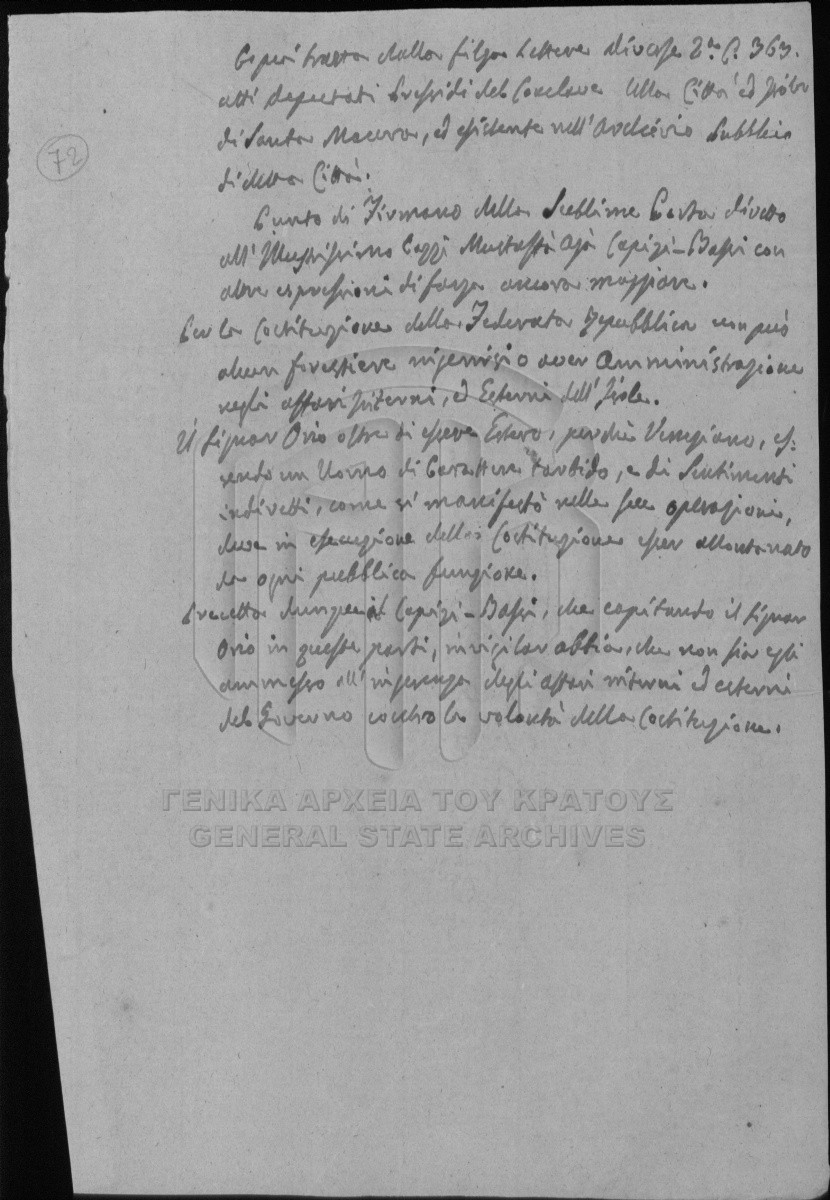 72
Copia tratta dalla filza Lettere diverse 2.da C. 363.
atti deputati Presidi del Conclave della Città ed Isola
di Santa Maura, ed esistente nell'Archivio Pubblico
di detta Città.
Punto di Firmano della Sublime Porta diretto
all'Illustrissimo Cozzi Mustaffà Agà Capizi-Bassi con
altre espressioni di forza ancora maggiore.
Per la Costituzione della Federata Repubblica non può
alcun forestiere ingerirsi o aver Amministrazione
negli affari Interni, ed Esterni dell'Isole.
Il Signor Orio oltre di essere Estero, perchè Veneziano, es:
sendo un Uomo di Carattere torbido, e di Sentimenti
indiretti, come si manifestò nelle sue operazioni,
deve in esecuzione della Costituzione esser allontanato
da ogni pubblica funzione.
Precetta dunque il Capizi-Bassi, che capitando il Signor
Orio in queste parti, invigilar abbia, che non sia egli
ammesso all'ingerenza degli affari interni ed esterni
del Governo contro la volontà della Costituzione.
ΓΕΝΙΚΑ ΑΡΧΕΙΑ ΤΟΥ ΚΡΑΤΟΥΣ
GENERAL STATE ARCHIVES